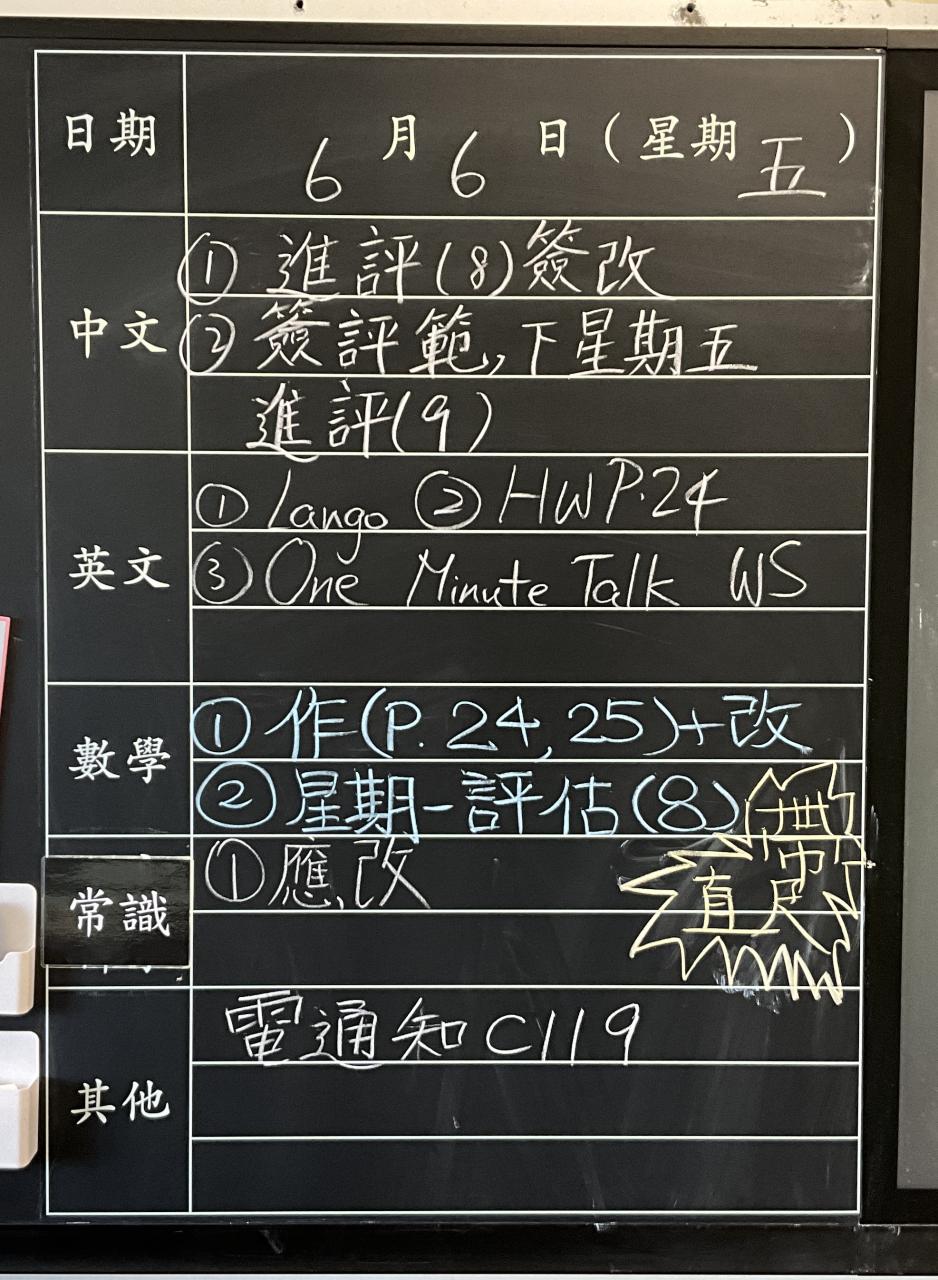 日期 6月6日(星期五)
中文 ① 進評(8)簽改
② 簽評範,下星期五
進評(9)
英文 ① Lango ② HW P.24
③ One Minute Talk WS
數學 ① 作(P.24,25)+改
② 星期一評估(8)
帶
直尺
常識 ① 應改
其他 電通知C119